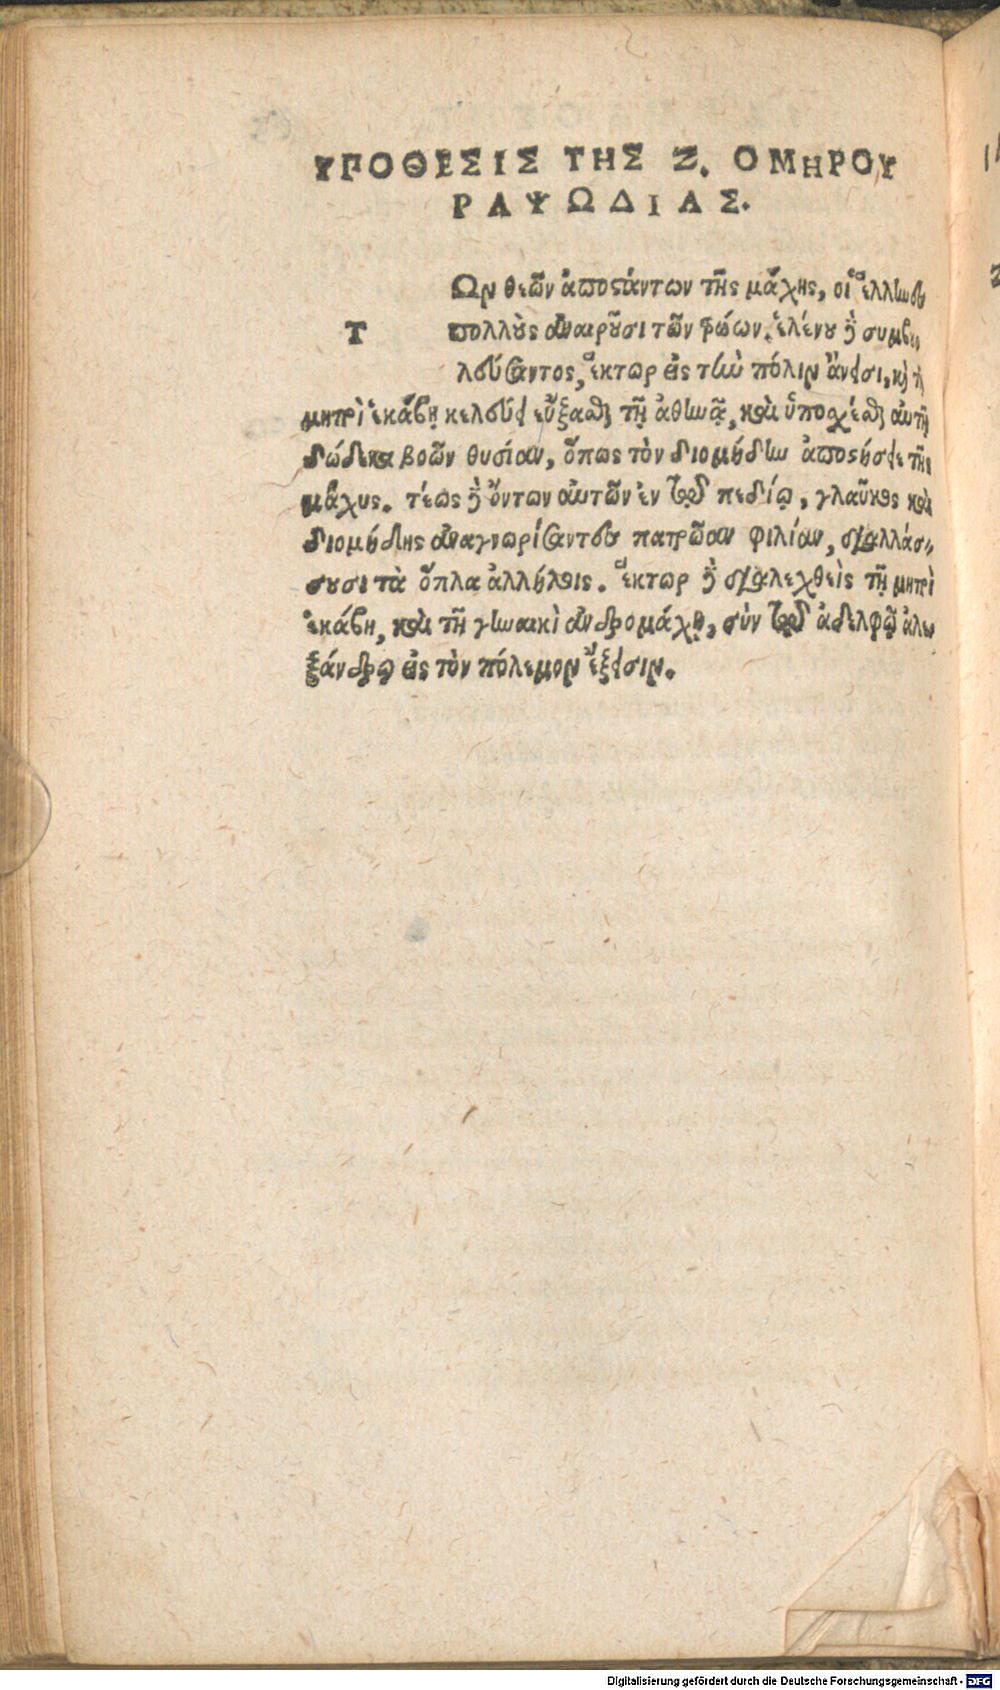 ΥΠΟΘΕΣΙΣ ΤΗΣ Ζ. ΟΜΗΡΟΥ
ΡΑΨΩΔΙΑΣ.
ΤΩν θεῶν ἀποστάντων τῆς μάχης, οἱ ἕλληνες
πολλοὺς ἀναιροῦσι τῶν τρώων. ἑλένου δὲ συμβου
λεύσαντος, ἕκτωρ εἰς τὴν πόλιν ἄνεισι, καὶ τῇ
μητρὶ ἑκάβῃ κελεύει εὔξασθαι τῇ ἀθηνᾷ, καὶ ὑποσχέσθαι αὐτῇ
δώδεκα βοῶν θυσίαν, ὅπως τὸν διομήδην ἀποστήσειε τῆς
μάχης. τέως δὲ ὄντων αὐτῶν ἐν τῷ πεδίῳ, γλαῦκος καὶ
διομήδης ἀναγνωρίσαντες πατρῶαν φιλίαν, διαλλάσ-
σουσι τὰ ὅπλα ἀλλήλοις. ἕκτωρ δὲ διαλεχθεὶς τῇ μητρὶ
ἑκάβῃ, καὶ τῇ γυναικὶ ἀνδρομάχῃ, σὺν τῷ ἀδελφῷ ἀλε
ξάνδρῳ εἰς τὸν πόλεμον ἔξεισιν.
Digitalisierung gefördert durch die Deutsche Forschungsgemeinschaft - DFG